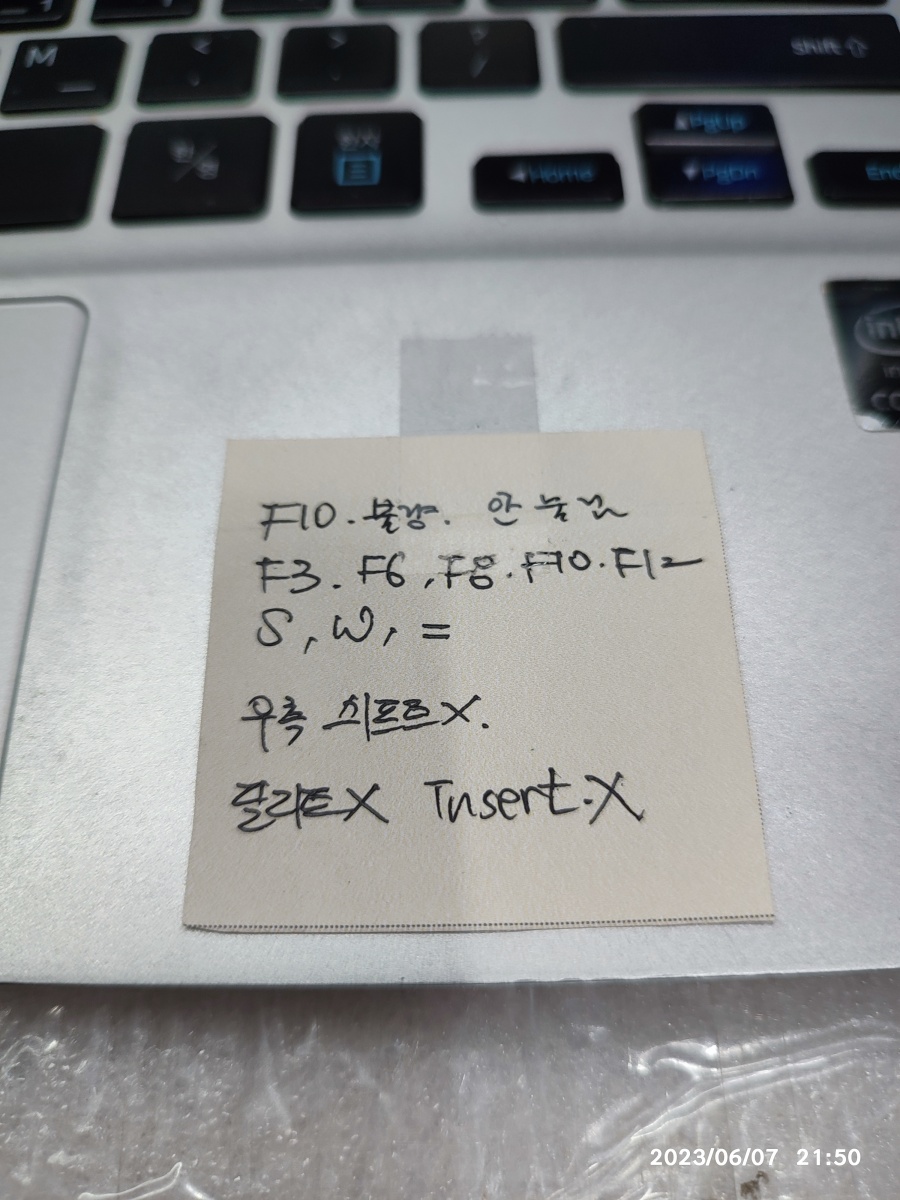 M
Shift
한/영
PgUp
Home
PgDn
F10. 불량. 안 눌림
F3. F6, F8. F10. F12
S, W, =
우측 시프트 X.
딜리트 X Insert. X
2023/06/07 21:50